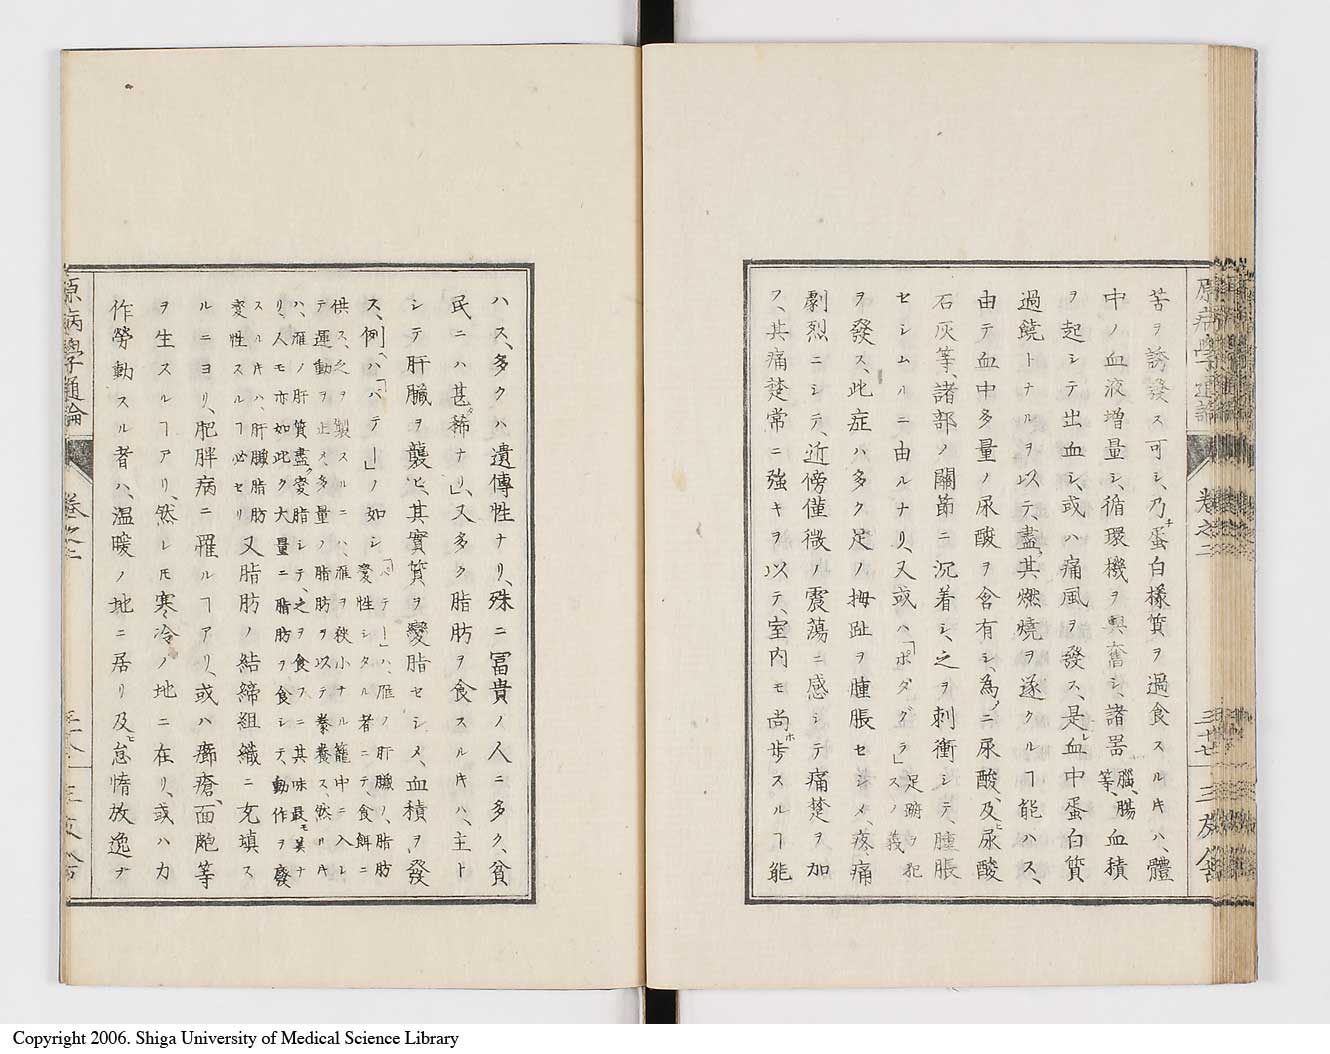 苦ヲ誘發ス可シ、乃チ蛋白樣質ヲ過食スルキハ、體
中ノ血液增量シ、循環機ヲ興奮シ、諸器腦、腸等、血積
ヲ起シテ出血シ、或ハ痛風ヲ發ス、是レ血中蛋白質
過饒トナルヲ以テ、盡ク其燃燒ヲ遂クルヿ能ハス、
由テ血中多量ノ尿酸ヲ含有シ、為メニ尿酸、及ヒ尿酸
石灰等、諸部ノ關節ニ沉着シ、之ヲ刺衝シテ、腫脹
セシムルニ由ルナリ、又或ハ「ポダグラ」足蹢ヲ犯スノ義
ヲ發ス、此症ハ多ク足ノ拇趾ヲ腫脹セシメ、疼痛
劇烈ニシテ、近傍僅微ノ震蕩ニ感シテ痛楚ヲ加
フ、其痛楚常ニ強キヲ以テ、室内モ尚ホ歩スルヿ能
原病學通論 卷之二 三十七 三友舍
ハス、多クハ遺傳性ナリ、殊ニ冨貴ノ人ニ多ク、貧
民ニハ甚タ稀ナリ」又多ク脂肪ヲ食スルキハ、主ト
シテ肝臟ヲ襲ヒ、其實質ヲ變脂セシメ、血積ヲ發
ス、例ヘハ「パテー」ノ如シ「パテー」ハ、雁ノ肝臟ノ、脂肪
變性シタル者ニテ、食餌ニ
供ス、之ヲ製スルニハ、雁ヲ狹小ナル籠中ニ入レ
テ運動ヲ止メ、多量ノ脂肪ヲ以テ養養ス、然ルキ
ハ、雁ノ肝質盡ク變脂シテ、之ヲ食フニ其味最モ美ナ
リ、人モ亦如此ク大量ニ脂肪ヲ食シテ、動作ヲ廢
スルキハ、肝臟脂肪
変性スルヿ必セリ又脂肪ノ結締組織ニ充填ス
ルニヨリ、肥胖病ニ罹ルヿアリ、或ハ癤瘡、面皰等
ヲ生スルヿアリ、然レモ寒冷ノ地ニ在リ、或ハ力
作勞動スル者ハ、溫暖ノ地ニ居リ及ヒ怠惰放逸ナ
原病學通論 卷之二 三友舍
Copyright 2006. Shiga University of Medical Science Library